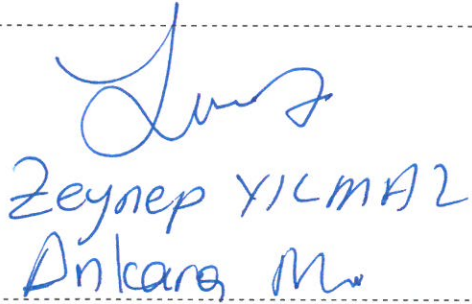 Zeynep YILMAZ
Ankara